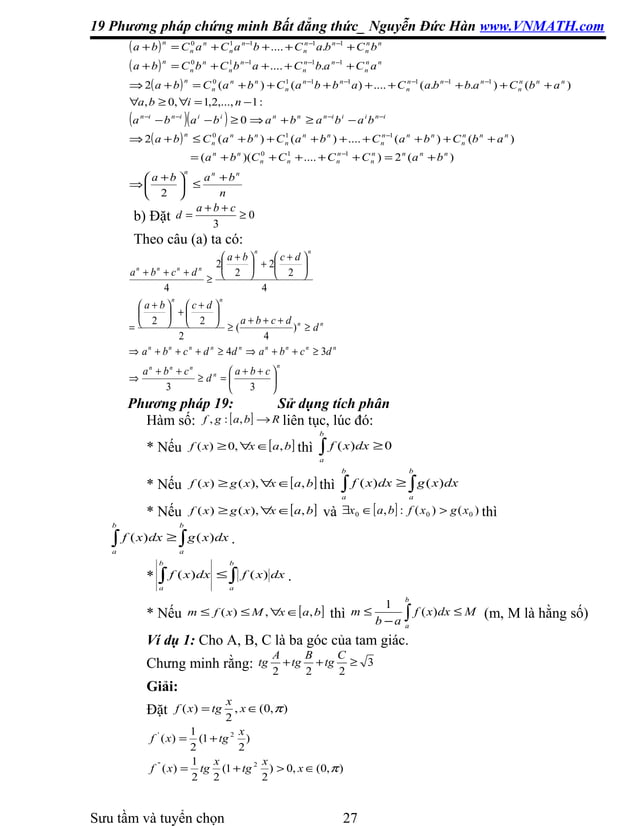 19 Phương pháp chứng minh Bất đẳng thức_ Nguyễn Đức Hàn www.VNMATH.com
(a+b)^n = C_n^0 a^n + C_n^1 a^{n-1} b + .... + C_n^{n-1} a.b^{n-1} + C_n^n b^n
(a+b)^n = C_n^0 b^n + C_n^1 b^{n-1} a + .... + C_n^{n-1} b.a^{n-1} + C_n^n a^n
⇒ 2(a+b)^n = C_n^0 (a^n + b^n) + C_n^1 (a^{n-1} b + b^{n-1} a) + .... + C_n^{n-1} (a.b^{n-1} + b.a^{n-1}) + C_n^n (b^n + a^n)
∀a,b ≥ 0, ∀i = 1,2,..., n−1:
(a^{n-i} − b^{n-i})(a^i − b^i) ≥ 0 ⇒ a^n + b^n ≥ a^{n-i} b^i − a^i b^{n-i}
⇒ 2(a+b)^n ≤ C_n^0 (a^n + b^n) + C_n^1 (a^n + b^n) + .... + C_n^{n-1} (a^n + b^n) + C_n^n (b^n + a^n)
= (a^n + b^n)(C_n^0 + C_n^1 + .... + C_n^{n-1} + C_n^n) = 2^n (a^n + b^n)
⇒ ((a+b)/2)^n ≤ (a^n + b^n)/n
b) Đặt d = (a+b+c)/3 ≥ 0
Theo câu (a) ta có:
(a^n + b^n + c^n + d^n)/4 ≥ (2((a+b)/2)^n + 2((c+d)/2)^n)/4
= (((a+b)/2)^n + ((c+d)/2)^n)/2 ≥ ((a+b+c+d)/4)^n ≥ d^n
⇒ a^n + b^n + c^n + d^n ≥ 4d^n ⇒ a^n + b^n + c^n ≥ 3d^n
⇒ (a^n + b^n + c^n)/3 ≥ d^n = ((a+b+c)/3)^n
Phương pháp 19: Sử dụng tích phân
Hàm số: f, g : [a,b] → R liên tục, lúc đó:
* Nếu f(x) ≥ 0, ∀x ∈ [a,b] thì ∫_a^b f(x)dx ≥ 0
* Nếu f(x) ≥ g(x), ∀x ∈ [a,b] thì ∫_a^b f(x)dx ≥ ∫_a^b g(x)dx
* Nếu f(x) ≥ g(x), ∀x ∈ [a,b] và ∃x_0 ∈ [a,b] : f(x_0) > g(x_0) thì
∫_a^b f(x)dx ≥ ∫_a^b g(x)dx .
* |∫_a^b f(x)dx| ≤ ∫_a^b |f(x)|dx .
* Nếu m ≤ f(x) ≤ M, ∀x ∈ [a,b] thì m ≤ 1/(b−a) ∫_a^b f(x)dx ≤ M (m, M là hằng số)
Ví dụ 1: Cho A, B, C là ba góc của tam giác.
Chưng minh rằng: tg A/2 + tg B/2 + tg C/2 ≥ √3
Giải:
Đặt f(x) = tg x/2, x ∈ (0,π)
f'(x) = 1/2 (1 + tg² x/2)
f"(x) = 1/2 tg x/2 (1 + tg² x/2) > 0, x ∈ (0,π)
Sưu tầm và tuyển chọn 27